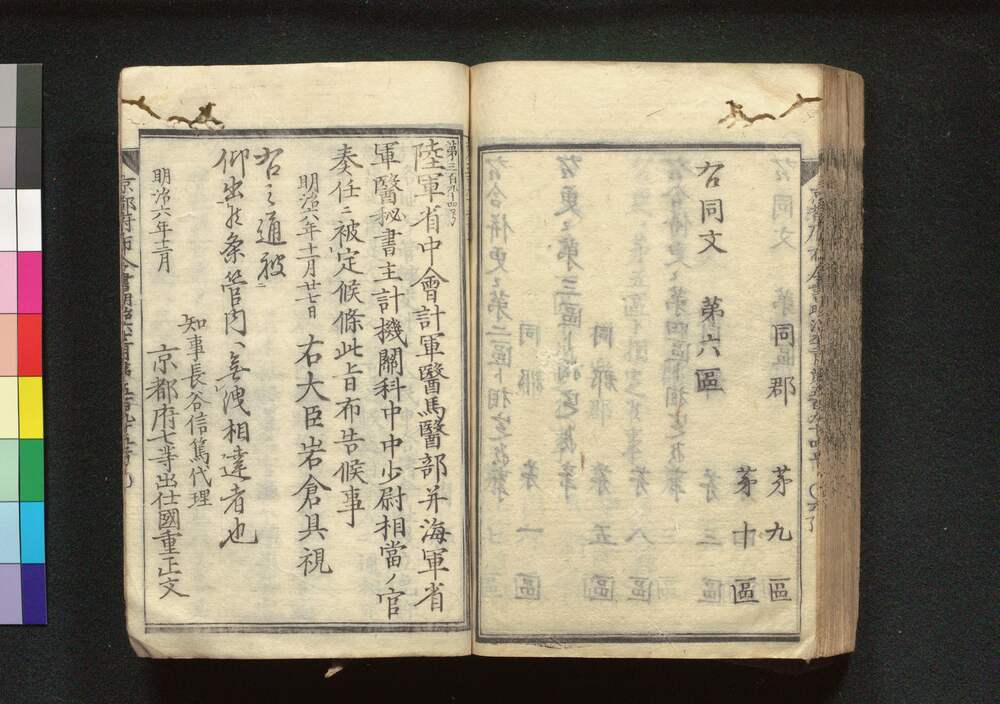 同郡 第九區
第十區
右同文 第六區
第三百九十四号
陸軍省中會計軍醫馬醫部并海軍省
軍醫秘書主計機關科中中少尉相當ノ官
奏任ニ被定候條此旨布告候事
明治六年十一月廿七日 右大臣岩倉具視
右之通被
仰出候条管内ヘ無洩相達者也
明治六年十二月 知事長谷信篤代理
京都府七等出仕國重正文